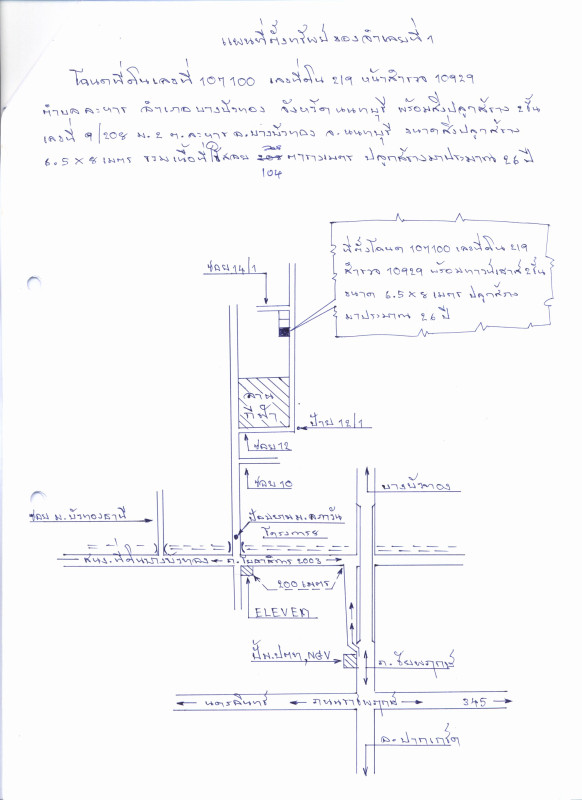 แผนที่ตั้งทรัพย์ของจำเลยที่ 1
โฉนดที่ดินเลขที่ 107100 เลขที่ดิน 219 หน้าสำรวจ 10929
ตำบลละหาร อำเภอบางบัวทอง จังหวัดนนทบุรี พร้อมสิ่งปลูกสร้าง 2 ชั้น
เลขที่ 9/208 ม.2 ต.ละหาร อ.บางบัวทอง จ.นนทบุรี ขนาดสิ่งปลูกสร้าง
6.5 × 8 เมตร รวมเนื้อที่ใช้สอย ตารางเมตร ปลูกสร้างมาประมาณ 26 ปี
104
ที่ตั้งโฉนด 107100 เลขที่ดิน 219
สำรวจ 10929 พร้อมทาวน์เฮาส์ 2 ชั้น
ขนาด 6.5 × 8 เมตร ปลูกสร้าง
มาประมาณ 26 ปี
ซอย 14/1
ลาน
กีฬา
ป้าย 12/1
ซอย 12
ซอย 10
บางบัวทอง
ซอย ม.บัวทองธานี
ป้อมยาม ม.
โครงการ 8
สนง.ที่ดินบางบัวทอง
ถ.โยธาธิการ 2003
200 เมตร
ELEVEN
ปั๊ม ปตท, NGV
ถ.ชัยพฤกษ์
นครอินทร์
ถนนราชพฤกษ์
345
อ.ปากเกร็ด